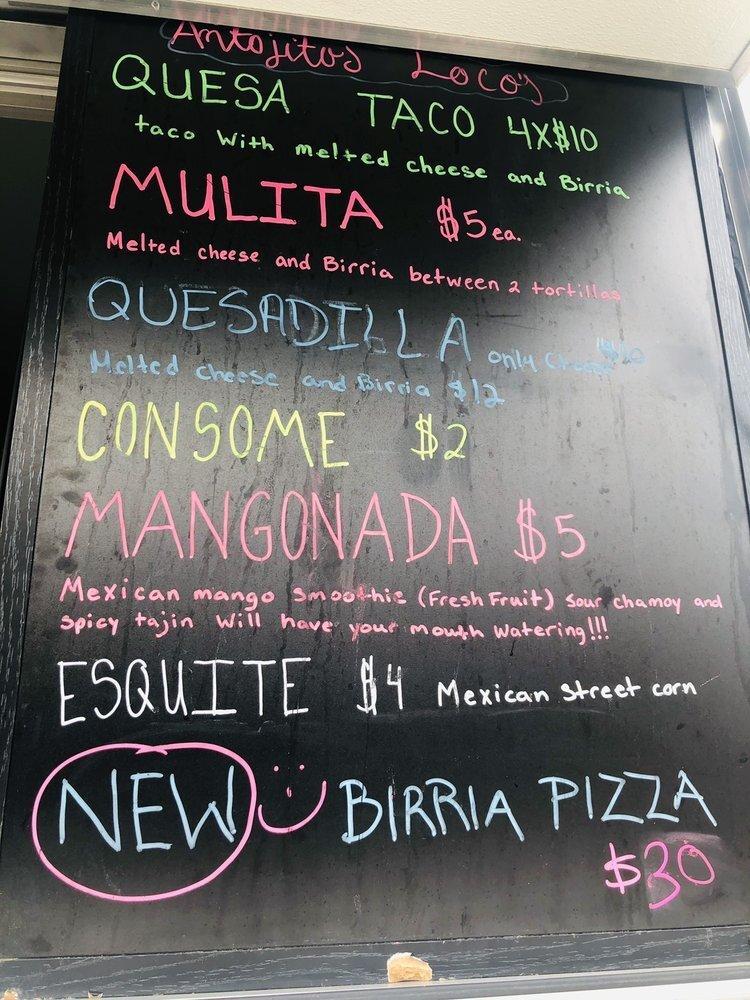 Antojitos Loco's
QUESA TACO 4X$10
taco With melted cheese and Birria
MULITA $5 ea.
Melted cheese and Birria between 2 tortillas
QUESADILLA only Cheese $10
Melted cheese and Birria $12
CONSOME $2
MANGONADA $5
Mexican mango smoothie (Fresh Fruit) sour chamoy and
spicy tajin will have your mouth watering!!!
ESQUITE $4 Mexican Street corn
NEW BIRRIA PIZZA
$30